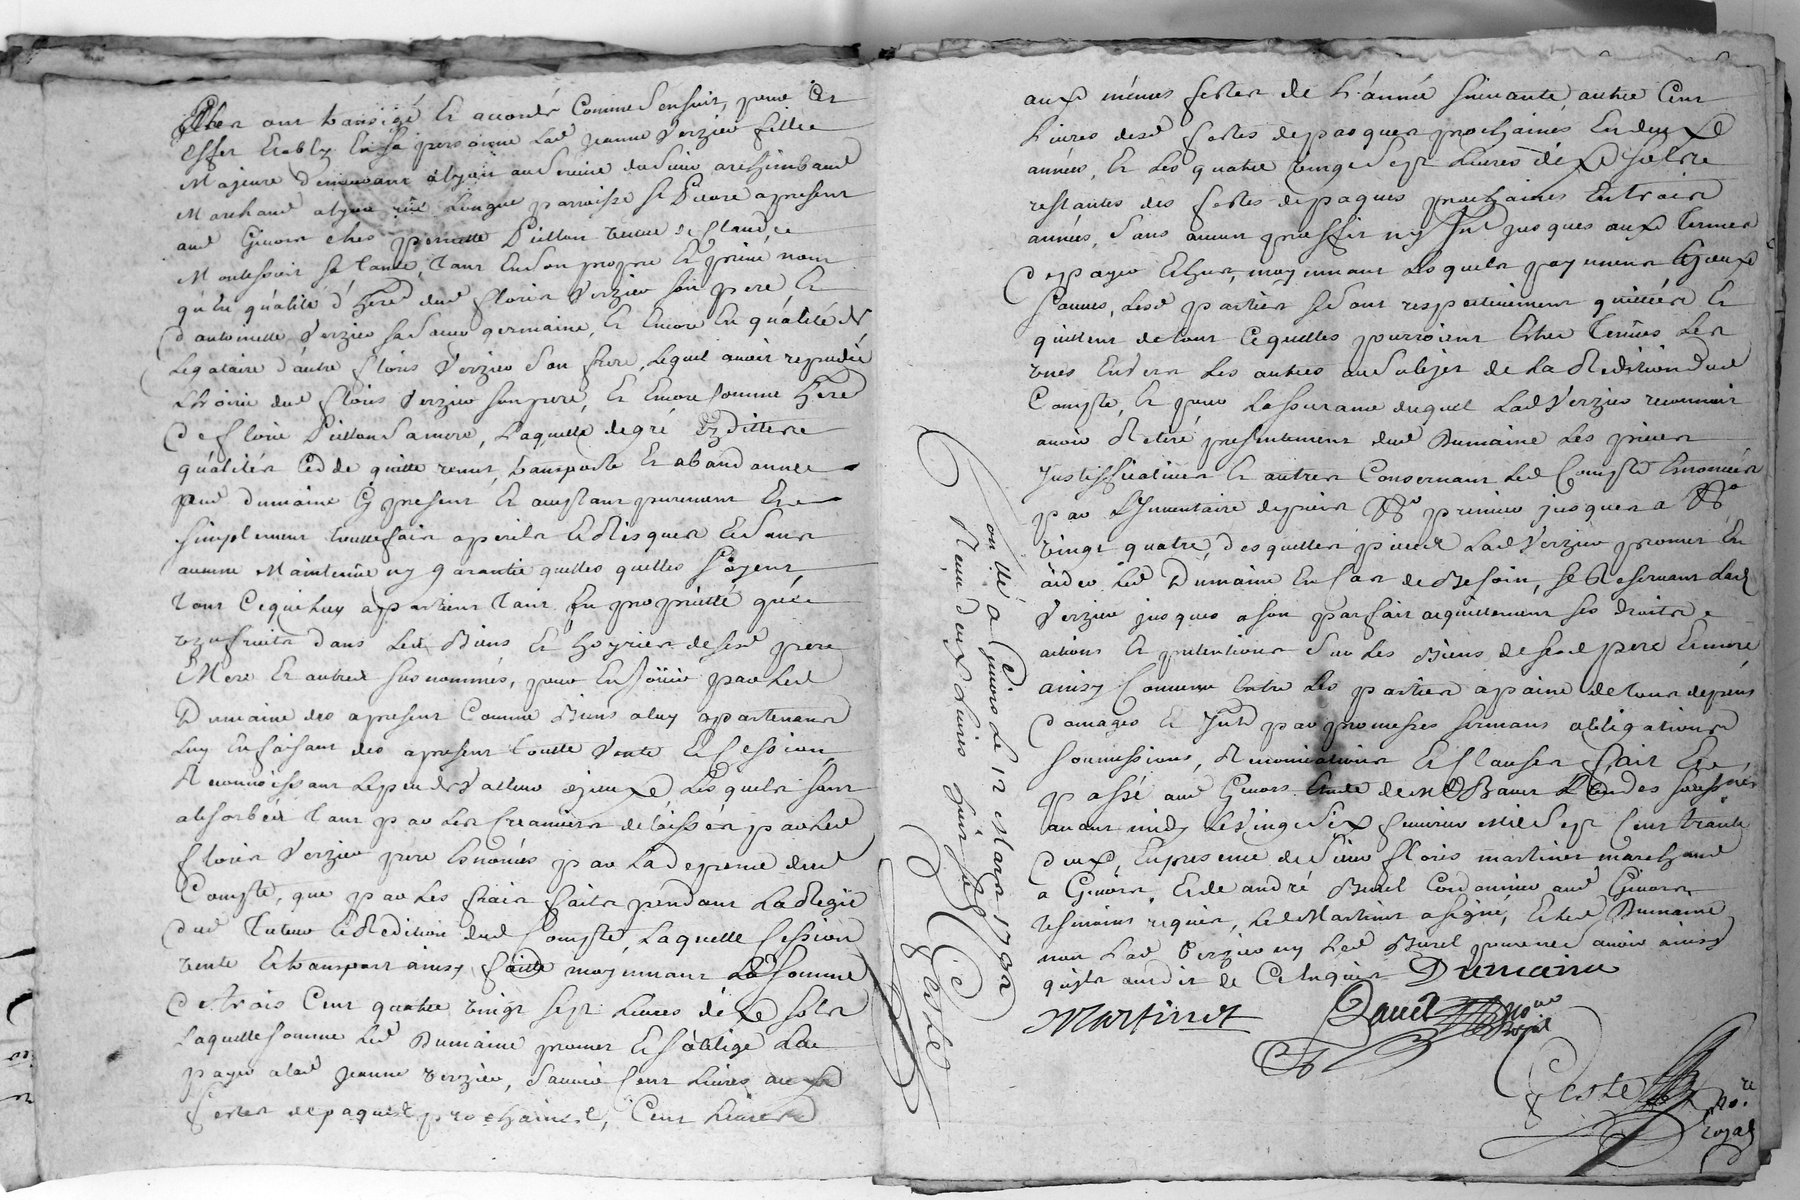 elles ont transigé et accordé comme sensuit, pour cet
effet establÿ en sa personne lad Jeanne Verzieu fille
Majeure demeurant a lyon au service du sieur archimbaud
Marchand a lyon rüe Longue parroisse St Pierre apresent
aud Givors ches pierrette Pitton veuve de Claude
sa tante, tant en son propre et privé nom
qu'en qualité d'here dud floris Verzieu son pere et
d'antoinette Verzieu sa soeur germaine, et encore en qualité de
Legataire d'autre floris Verzieu son frere, lequel avoit repudié
Lhoirie dud floris Verzieu son pere, et encore comme here
de florie Pitton sa mere, Laquelle de gré esdittes
qualités cede quitte remet, transporte et abandonne
aud Dumaine cy present et acceptant purement et
simplement touttefois a perils et Risques et sans
aucune Maintenüe ny garantie quelles quelles soyent,
tout ce qui luy appartient tant en propriétté que
uzufruits dans les Biens et hoyries desd pere
Mere et autres sus nommés, pour en joüir par led
Dumaine des apresent comme Biens a luy appartenants
luy en faisant des apresent toutte vente et cession,
Reconnoissant le peu de valleur d'jceux, lesquels sont
absorbés tant par les creanciers delaissés par led
floris Verzieu pere enoncés par la depense dud
Compte, que par les frais faits pendant la Regie
dud tuteur et Redition dud Compte, laquelle cession
vente et transport ainsy faitte moyennant la somme
de trois cent quatre vingt sept livres dix sols
laquelle somme led Dumaine promet et s'oblige de
payer a lad Jeanne verzieu, scavoir cent livres aux
festes de paques prochaines, cent livres
aux mêmes festes de l'année suivante, autre cent
livres desd festes de paques prochaines en deux
années, et les quatre vingt sept livres dix sols
restantes des festes de paques prochaines en trois
années, sans aucun proffit ny Int jusques aux termes
de payer echus, moyennant lesquels payements
lesd parties se sont respectivement quittées et
quittent de tout ce quelles pourroient estre tenües les
unes envers les autres au subjet de la Redition dud
Compte, et pour lassurance duquel lad Verzieu reconnoit
avoir Retiré presentement dud Dumaine les pieces
justifficatives et autres concernant led Compte enoncées
par l'Inventaire depuis No premier jusques a No
vingt quatre, desquelles pieces lad Verzieu promet en
aider led Dumaine en cas de Besoin, se Reservant lad
Verzieu jusques a son parfait acquittement ses droits
actions et pretentions sur les Biens de sesd pere et mere
ainsy convenu entre les parties a paine de tous depens
damages et Int par promesses serments obligations
soumissions, Renonciations et clauses, fait et
passé aud Givors Etude de Me Bauet
avant midy le vingt six fevrier mil sept cent trente
deux, En presence de Sieur floris martinet marchand
a Givors, et de andré Burel Cordonnier aud Givors
tesmoins requis, led Martinet a signé, et led Dumaine
non lad Verzieu ny led Burel pour ne scavoir ainsy
quils ont dit de ce Enquis Dumaine
Martinet
Nore
Royal
Geste No.re
royal
Conllé a Givors le 12 Mars 1732
Reçu deux livres
Geste